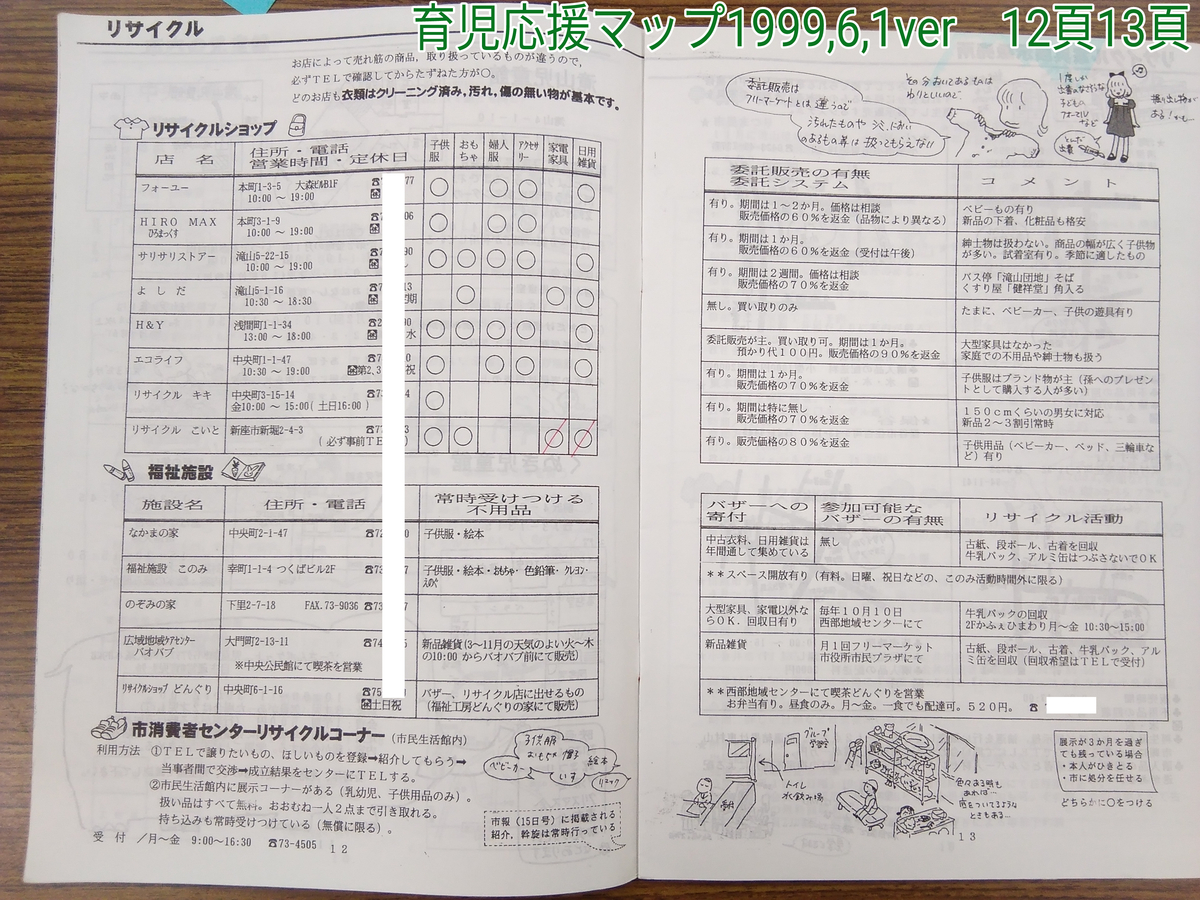 育児応援マップ1999,6,1ver　12頁13頁
リサイクル
お店によって売れ筋の商品，取り扱っているものが違うので，
必ずＴＥＬで確認してからたずねた方が〇。
どのお店も衣類はクリーニング済み，汚れ，傷の無い物が基本です。
リサイクルショップ
店　名　住所・電話　営業時間・定休日　子供服　おもちゃ　婦人服　アクセサリー　家電家具　日用雑貨
フォーユー　本町1-3-5　大森ビルB1F　☎7　77　〇　〇　〇　〇
10:00 ～ 19:00
ＨＩＲＯ　ＭＡＸ　本町3-1-9　☎7　06　〇　〇　〇　〇
ひろまっくす　10:00 ～ 19:00
サリサリストアー　滝山5-22-15　☎7　90　〇　〇　〇　〇　〇
10:00 ～ 19:00
よしだ　滝山5-1-16　☎7　13　〇　〇　〇
10:30 ～ 18:30　定期
Ｈ&Ｙ　浅間町1-1-34　☎2　00　〇　〇　〇　〇　〇
13:00 ～ 18:00　水
エコライフ　中央町1-1-47　☎7　0　〇　〇　〇　〇
10:30 ～ 19:00　第2,3　祝
リサイクル　キキ　中央町3-15-14　☎7　4　〇
金10:00 ～ 15:00( 土日16:00 )
リサイクル　こいと　新座市新堀2-4-3　☎7　3　〇　〇　〇　〇
( 必ず事前ＴＥ
福祉施設
施設名　住所・電話　常時受けつける不用品
なかまの家　中央町2-1-47　☎72　0　子供服・絵本
福祉施設　このみ　幸町1-1-4 つくばビル2F　☎73　7　子供服・絵本・おもちゃ・色鉛筆・クレヨン・えのぐ
のぞみの家　下里2-7-18　FAX.73-9036　☎73　7
広域地域ケアセンター　バオバブ　大門町2-13-11　☎74　5　新品雑貨(3～11月の天気のよい火～木
※中央公民館にて喫茶を営業　の10:00 からバオバブ前にて販売)
リサイクルショップ どんぐり　中央町6-1-16　☎75　バザー、リサイクル店に出せるもの
土日祝　（福祉工房どんぐりの家にて販売）
市消費者センターリサイクルコーナー（市民生活館内）
利用方法　①ＴＥＬで譲りたいもの、ほしいものを登録➡紹介してもらう➡
当事者間で交渉➡成立結果をセンターにＴＥＬする。
②市民生活館内に展示コーナーがある（乳幼児、子供用品のみ）。
扱い品はすべて無料。おおむね一人２点まで引き取れる。
持ち込みも常時受けつけている（無償に限る）。
受　付　／月～金　9:00～16:30　☎73-4505
子供服
おもちゃ　帽子
いす
ベビーカー
絵本
リュック
市報（15日号）に掲載される
紹介，斡旋は常時行っている
１２
委託販売は
フリーマーケットとは違うので
汚れたものや シミ，におい
のあるもの等は 扱ってもらえない
その分おいてあるものは
わりといいので、
１度しか
出番のなさそうな
子どもの
フォーマル
など
とんだ
出費
掘り出し物が
ある！かも…
委託販売の有無　委託システム　コメント
有り。期間は１～２か月。価格は相談　ベビーもの有り
販売価格の６０％を返金（品物により異なる）　新品の下着、化粧品も格安
有り。期間は１か月。　紳士物は扱わない。商品の幅が広く子供物
販売価格の６０％を返金（受付は午後）　が多い。試着室有り。季節に適したもの
有り。期間は２週間。価格は相談　バス停「滝山団地」そば
販売価格の７０％を返金　くすり屋「健祥堂」角入る
無し。買い取りのみ　たまに、ベビーカー、子供の遊具有り
委託販売が主。買い取り可。期間は１か月。　大型家具はなかった
預かり代１００円。販売価格の９０％を返金　家庭での不用品や紳士物も扱う
有り。期間は１か月。　子供服はブランド物が主（孫へのプレゼン
販売価格の７０％を返金　トとして購入する人が多い）
有り。期間は特に無し　１５０ｃｍくらいの男女に対応
販売価格の７０％を返金　新品２～３割引常時
有り。販売価格の８０％を返金　子供用品（ベビーカー、ベッド、三輪車など）有り
バザーへの寄付　参加可能なバザーの有無　リサイクル活動
中古衣料、日用雑貨は　無し　古紙、段ボール、古着を回収
年間通して集めている　牛乳パック、アルミ缶はつぶさないでＯＫ
＊＊スペース開放有り（有料。日曜、祝日などの、このみ活動時間外に限る）
大型家具、家電以外な　毎年１０月１０日　牛乳パックの回収
らＯＫ．回収日有り　西部地域センターにて　2Fかふぇひまわり月～金 10:30～15:00
新品雑貨　月１回フリーマーケット　古紙、段ボール、古着、牛乳パック、アル
市役所市民プラザにて　ミ缶を回収（回収希望はＴＥＬで受付）
＊＊西部地域センターにて喫茶どんぐりを営業
お弁当有り。昼食のみ。月～金。一食でも配達可。５２０円。☎
グループ
学習室
トイレ
水飲み場
受付
色々ある時も
あれば…
ときもある…
展示が３か月を過ぎ
ても残っている場合
・本人がひきとる
・市に処分を任せる
どちらかに〇をつける
１３